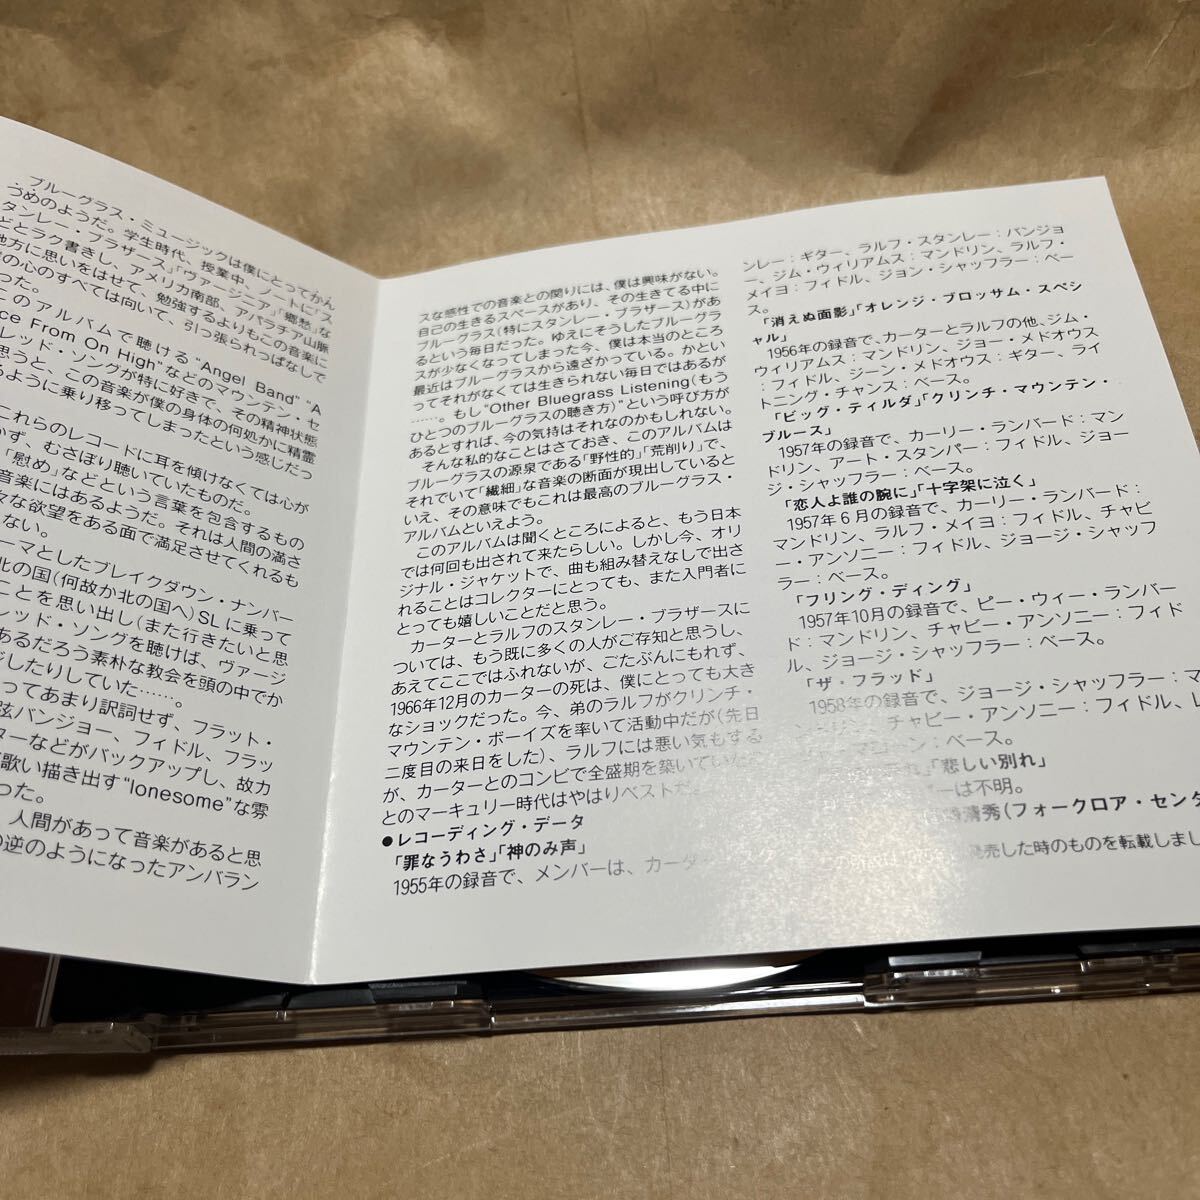 ブルーグラス・ミュージックは僕にとってかん
うめのようだ。学生時代、授業中、ノートに「ス
タンレー・ブラザース」「ヴァージニア」「郷愁」な
どとラク書きし、アメリカ南部、アパラチア山脈
地方に思いをはせて、勉強するよりもこの音楽に
の心のすべては向いて、引っ張られっぱなしで
った。
このアルバムで聴ける“Angel Band” “A
ce From On High”などのマウンテン・セ
レッド・ソングが特に好きで、その精神状態
思うと、この音楽が僕の身体の何処かに精霊
るように乗り移ってしまったという感じだっ
これらのレコードに耳を傾けなくては心が
かず、むさぼり聴いていたものだ。
「慰め」などという言葉を包含するもの
音楽にはあるようだ。それは人間の満さ
な欲望をある面で満足させてくれるも
ない。
ーマとしたブレイクダウン・ナンバー
北の国(何故か北の国へ)SLに乗って
ことを思い出し(また行きたいと思
レッド・ソングを聴けば、ヴァージ
あるだろう素朴な教会を頭の中でか
ジしたりしていた……。
ってあまり訳詞せず、フラット・
弦バンジョー、フィドル、フラッ
ターなどがバックアップし、故カ
歌い描き出す“lonesome”な雰
った。
人間があって音楽があると思
の逆のようになったアンバラン
スな感性での音楽との関りには、僕は興味がない。
自己の生きるスペースがあり、その生きてる中に
ブルーグラス(特にスタンレー・ブラザース)があ
るという毎日だった。ゆえにそうしたブルーグラ
スが少なくなってしまった今、僕は本当のところ
最近はブルーグラスから遠ざかっている。かとい
ってそれがなくては生きられない毎日ではあるが
……。もし“Other Bluegrass Listening(もう
ひとつのブルーグラスの聴き方)”という呼び方が
あるとすれば、今の気持はそれなのかもしれない。
そんな私的なことはさておき、このアルバムは
ブルーグラスの源泉である「野性的」「荒削り」で、
それでいて「繊細」な音楽の断面が現出していると
いえ、その意味でもこれは最高のブルーグラス・
アルバムといえよう。
このアルバムは聞くところによると、もう日本
では何回も出されて来たらしい。しかし今、オリ
ジナル・ジャケットで、曲も組み替えなしで出さ
れることはコレクターにとっても、また入門者に
とっても嬉しいことだと思う。
カーターとラルフのスタンレー・ブラザースに
ついては、もう既に多くの人がご存知と思うし、
あえてここではふれないが、ごたぶんにもれず、
1966年12月のカーターの死は、僕にとっても大き
なショックだった。今、弟のラルフがクリンチ・
マウンテン・ボーイズを率いて活動中だが(先日
二度目の来日をした)、ラルフには悪い気もする
が、カーターとのコンビで全盛期を築いていた
とのマーキュリー時代はやはりベストだ
●レコーディング・データ
「罪なうわさ」「神のみ声」
1955年の録音で、メンバーは、カータ
ンレー：ギター、ラルフ・スタンレー：バンジョ
ー、ジム・ウィリアムス：マンドリン、ラルフ・
メイヨ：フィドル、ジョン・シャッフラー：ベー
ス。
「消えぬ面影」「オレンジ・ブロッサム・スペシ
ャル」
1956年の録音で、カーターとラルフの他、ジム・
ウィリアムス：マンドリン、ジョー・メドオウス
：フィドル、ジーン・メドオウス：ギター、ライ
トニング・チャンス：ベース。
「ビッグ・ティルダ」「クリンチ・マウンテン・
ブルース」
1957年の録音で、カーリー・ランバード：マン
ドリン、アート・スタンパー：フィドル、ジョー
ジ・シャッフラー：ベース。
「恋人よ誰の腕に」「十字架に泣く」
1957年6月の録音で、カーリー・ランバード：
マンドリン、ラルフ・メイヨ：フィドル、チャビ
ー・アンソニー：フィドル、ジョージ・シャッフ
ラー：ベース。
「フリング・ディング」
1957年10月の録音で、ピー・ウィー・ランバー
ド：マンドリン、チャビー・アンソニー：フィド
ル、ジョージ・シャッフラー：ベース。
「ザ・フラッド」
1958年の録音で、ジョージ・シャッフラー：マ
ンドリン、チャビー・アンソニー：フィドル、レ
：ベース。
れ」「悲しい別れ」
ーは不明。
清秀(フォークロア・センタ
発売した時のものを転載しまし